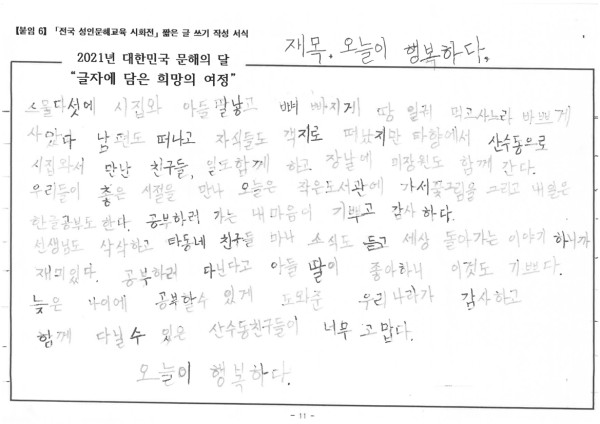 【붙임 6】「전국 성인문해교육 시화전」 짧은 글 쓰기 작성 서식
2021년 대한민국 문해의 달
“글자에 담은 희망의 여정”
재목. 오늘이 행복하다.
스물다섯에 시집와 아들 딸 낳고 뼈 빠지게 땅 일궈 먹고사느라 바쁘게
사았다 남편도 떠나고 자식들도 객지로 떠났지만 타향에서 산수동으로
시집와서 만난 친구들, 일도함께 하고 장날에 미장원도 함께 간다.
우리들이 좋은 시절을 만나 오늘은 작은도서관에 가서꽃그림을 그리고 내일은
한글공부도한다. 공부하러 가는 내마음이 기쁘고 감사 하다.
선생님도 삭삭하고 타동네 친구들 마나 소식도 듣고 세상 돌아가는 이야기 하니까
재미있다. 공부하러 다닌다고 아들 딸이 좋아하니 이것도 기쁘다.
늦은 나이에 공부할수 있게 도와준 우리나라가 감사하고
함께 다닐수 있은 산수동친구들이 너무 고맙다.
오늘이 행복하다.
- 11 -